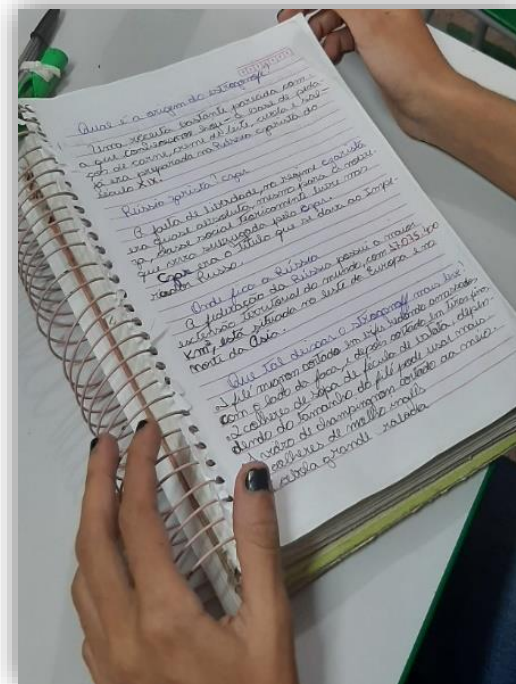 Qual é a origem do estrogonofe
Uma receita bastante parecida com
a que conhecemos hoje - à base de peda-
ços de carne, creme de leite, cebola e sal -
já era preparada na Rússia czarista do
século XIX.
Rússia czarista? Czar
A falta de liberdade, no regime czarista
era quase absoluta, mesmo para a nobre-
za, classe social teoricamente livre mas
que vivia subjugada pelo czar.
Czar era o título que se dava ao Impe-
rador Russo.
Onde fica a Rússia
A federação da Rússia possui a maior
extensão territorial do mundo, com 17.075.400
km², está situada no leste da Europa e no
norte da Ásia.
Que tal deixar o strogonoff mais leve?
1 filé mignon cortado em bifes
com o lado da faca, e depois cortado em tiras finas
2 colheres de sopa de fécula de batata depen-
dendo do tamanho do filé pode usar mais
vidro de champignon cortado ao meio
colheres de molho inglês
cebola grande ralada